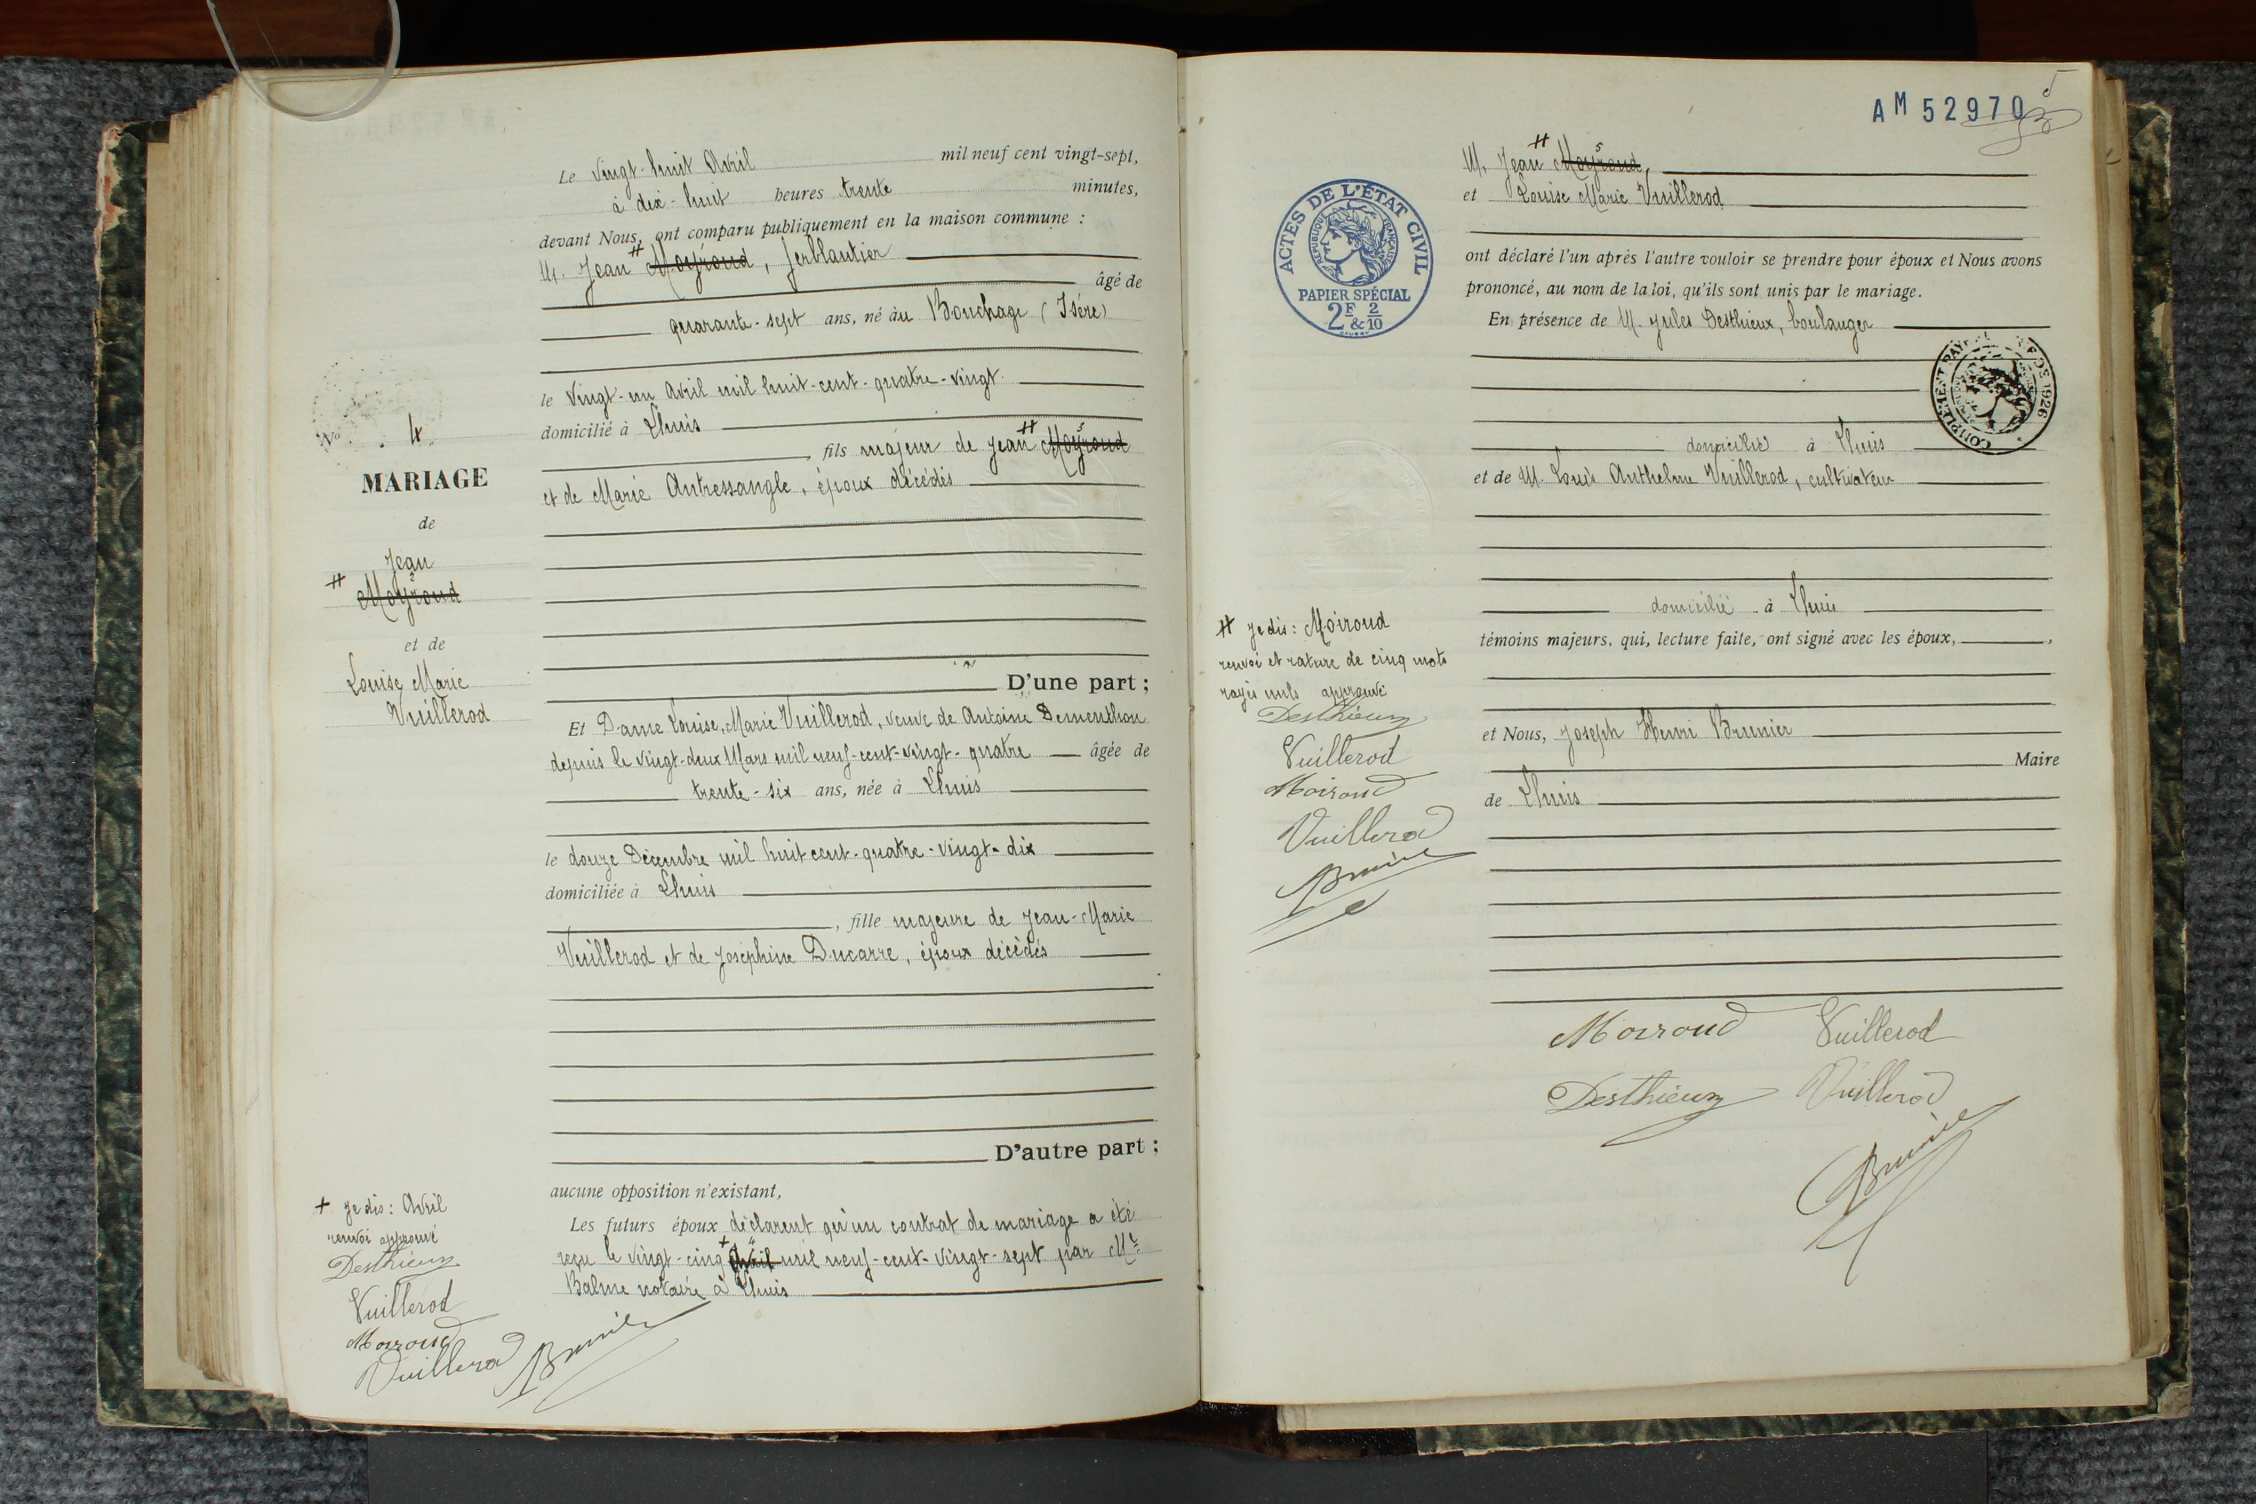 Le vingt-huit Avril mil neuf cent vingt-sept,
à dix-huit heures trente minutes,
devant Nous, ont comparu publiquement en la maison commune :
M. Jean # Moyroud, ferblantier
âgé de
quarante-sept ans, né au Bouchage (Isére)
le vingt-un Avril mil huit-cent-quatre-vingt
domicilié à Lhuis
, fils majeur de Jean # Moyroud
et de Marie Antressangle, époux décédés
D'une part ;
Et Dame Louise, Marie Vuillerod, veuve de Antoine Dementhon
depuis le vingt-deux Mars mil neuf-cent-vingt-quatre âgée de
trente-six ans, née à Lhuis
le douze Décembre mil huit cent-quatre-vingt-dix
domiciliée à Lhuis
, fille majeure de Jean-Marie
Vuillerod et de Joséphine Ducarre, époux décédés
D'autre part ;
aucune opposition n'existant,
Les futurs époux déclarent qu'un contrat de mariage a été
reçu le vingt-cinq + Avril mil neuf-cent-vingt-sept par Me
Balme notaire à Lhuis
No 4
MARIAGE
de
Jean
# Moyroud
et de
Louise Marie
Vuillerod
+ je dis : Avril
renvoi approuvé
Desthieux
Vuillerod
Moiroud
Vuillerod
Brunier
AM 52970
5
M. Jean # Moyroud
et Louise Marie Vuillerod
ont déclaré l'un après l'autre vouloir se prendre pour époux et Nous avons
prononcé, au nom de la loi, qu'ils sont unis par le mariage.
En présence de M. Jules Desthieux, boulanger
domicilié à Lhuis
et de M. Louis Anthelme Vuillerod, cultivateur
domicilié à Lhuis
témoins majeurs, qui, lecture faite, ont signé avec les époux,
et Nous, Joseph Henri Brunier
Maire
de Lhuis
ACTES DE L'ÉTAT CIVIL
RÉPUBLIQUE FRANÇAISE
PAPIER SPÉCIAL
2F & 2/10
COMPLÉMENT DE 1926
# je dis : Moiroud
renvoi et rature de cinq mots
rayés nuls approuvé
Desthieux
Vuillerod
Moiroud
Vuillerod
Brunier
Moiroud Vuillerod
Desthieux Vuillerod
Brunier